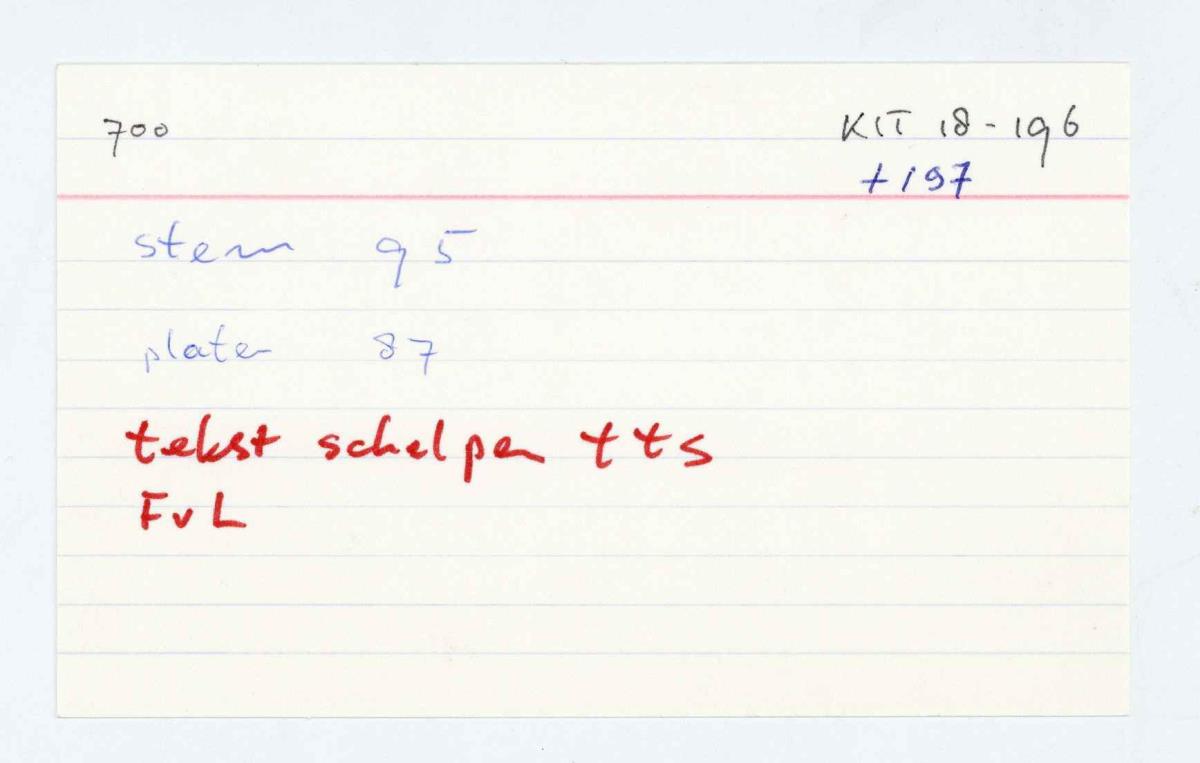 700 KIT 18-196
+197
stem 95
platen 87
tekst schelpen tts
FvL